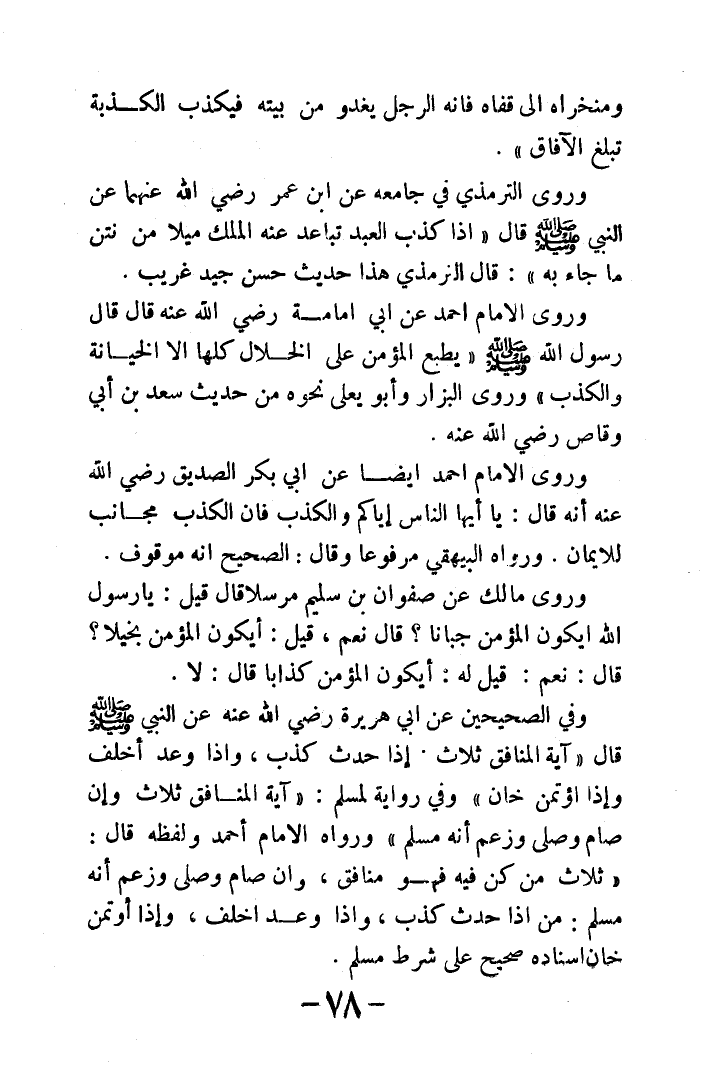 ومنخراه الى قفاه فانه الرجل يغدو من بيته فيكذب الكذبة
تبلغ الآفاق » .
وروى الترمذي في جامعه عن ابن عمر رضي الله عنهما عن
النبي ﷺ قال « اذا كذب العبد تباعد عنه الملك ميلا من نتن
ما جاء به » : قال الترمذي هذا حديث حسن جيد غريب .
وروى الامام احمد عن ابي امامة رضي الله عنه قال قال
رسول الله ﷺ « يطبع المؤمن على الخلال كلها الا الخيانة
والكذب » وروى البزار وأبو يعلى نحوه من حديث سعد بن أبي
وقاص رضي الله عنه .
وروى الامام احمد ايضا عن ابي بكر الصديق رضي الله
عنه أنه قال : يا أيها الناس إياكم والكذب فان الكذب مجانب
للايمان . ورواه البيهقي مرفوعا وقال : الصحيح انه موقوف .
وروى مالك عن صفوان بن سليم مرسلا قال قيل : يارسول
الله ايكون المؤمن جبانا ؟ قال نعم ، قيل : أيكون المؤمن بخيلا ؟
قال : نعم : قيل له : أيكون المؤمن كذابا قال : لا .
وفي الصحيحين عن ابي هريرة رضي الله عنه عن النبي ﷺ
قال « آية المنافق ثلاث . إذا حدث كذب ، واذا وعد أخلف
وإذا اؤتمن خان » وفي رواية لمسلم : « آية المنافق ثلاث وإن
صام وصلى وزعم أنه مسلم » ورواه الامام أحمد ولفظه قال :
« ثلاث من كن فيه فهو منافق ، وان صام وصلى وزعم أنه
مسلم : من اذا حدث كذب ، واذا وعد اخلف ، وإذا أوتمن
خان اسناده صحيح على شرط مسلم .
– ٧٨ –